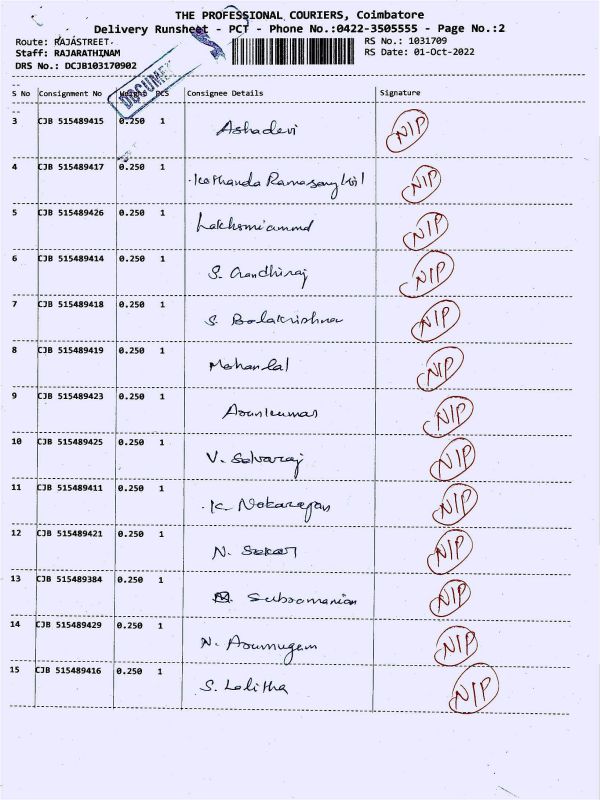 THE PROFESSIONAL COURIERS, Coimbatore
Delivery Runsheet - PCT - Phone No.:0422-3505555 - Page No.:2
Route: RAJASTREET. RS No.: 1031709
Staff: RAJARATHINAM RS Date: 01-Oct-2022
DRS No.: DCJB103170902
S No Consignment No Weight PCS Consignee Details Signature
3 CJB 515489415 0.250 1 Ashadevi NIP
4 CJB 515489417 0.250 1 NIP
5 CJB 515489426 0.250 1 Lakshmiammal NIP
6 CJB 515489414 0.250 1 S. Gandhiraj NIP
7 CJB 515489418 0.250 1 S. Balakrishnan NIP
8 CJB 515489419 0.250 1 Mohanlal NIP
9 CJB 515489423 0.250 1 Arunkumar NIP
10 CJB 515489425 0.250 1 V. Selvaraj NIP
11 CJB 515489411 0.250 1 K. NIP
12 CJB 515489421 0.250 1 N. Sekar NIP
13 CJB 515489384 0.250 1 Subramanian NIP
14 CJB 515489429 0.250 1 N. Arumugam NIP
15 CJB 515489416 0.250 1 S. Lalitha NIP